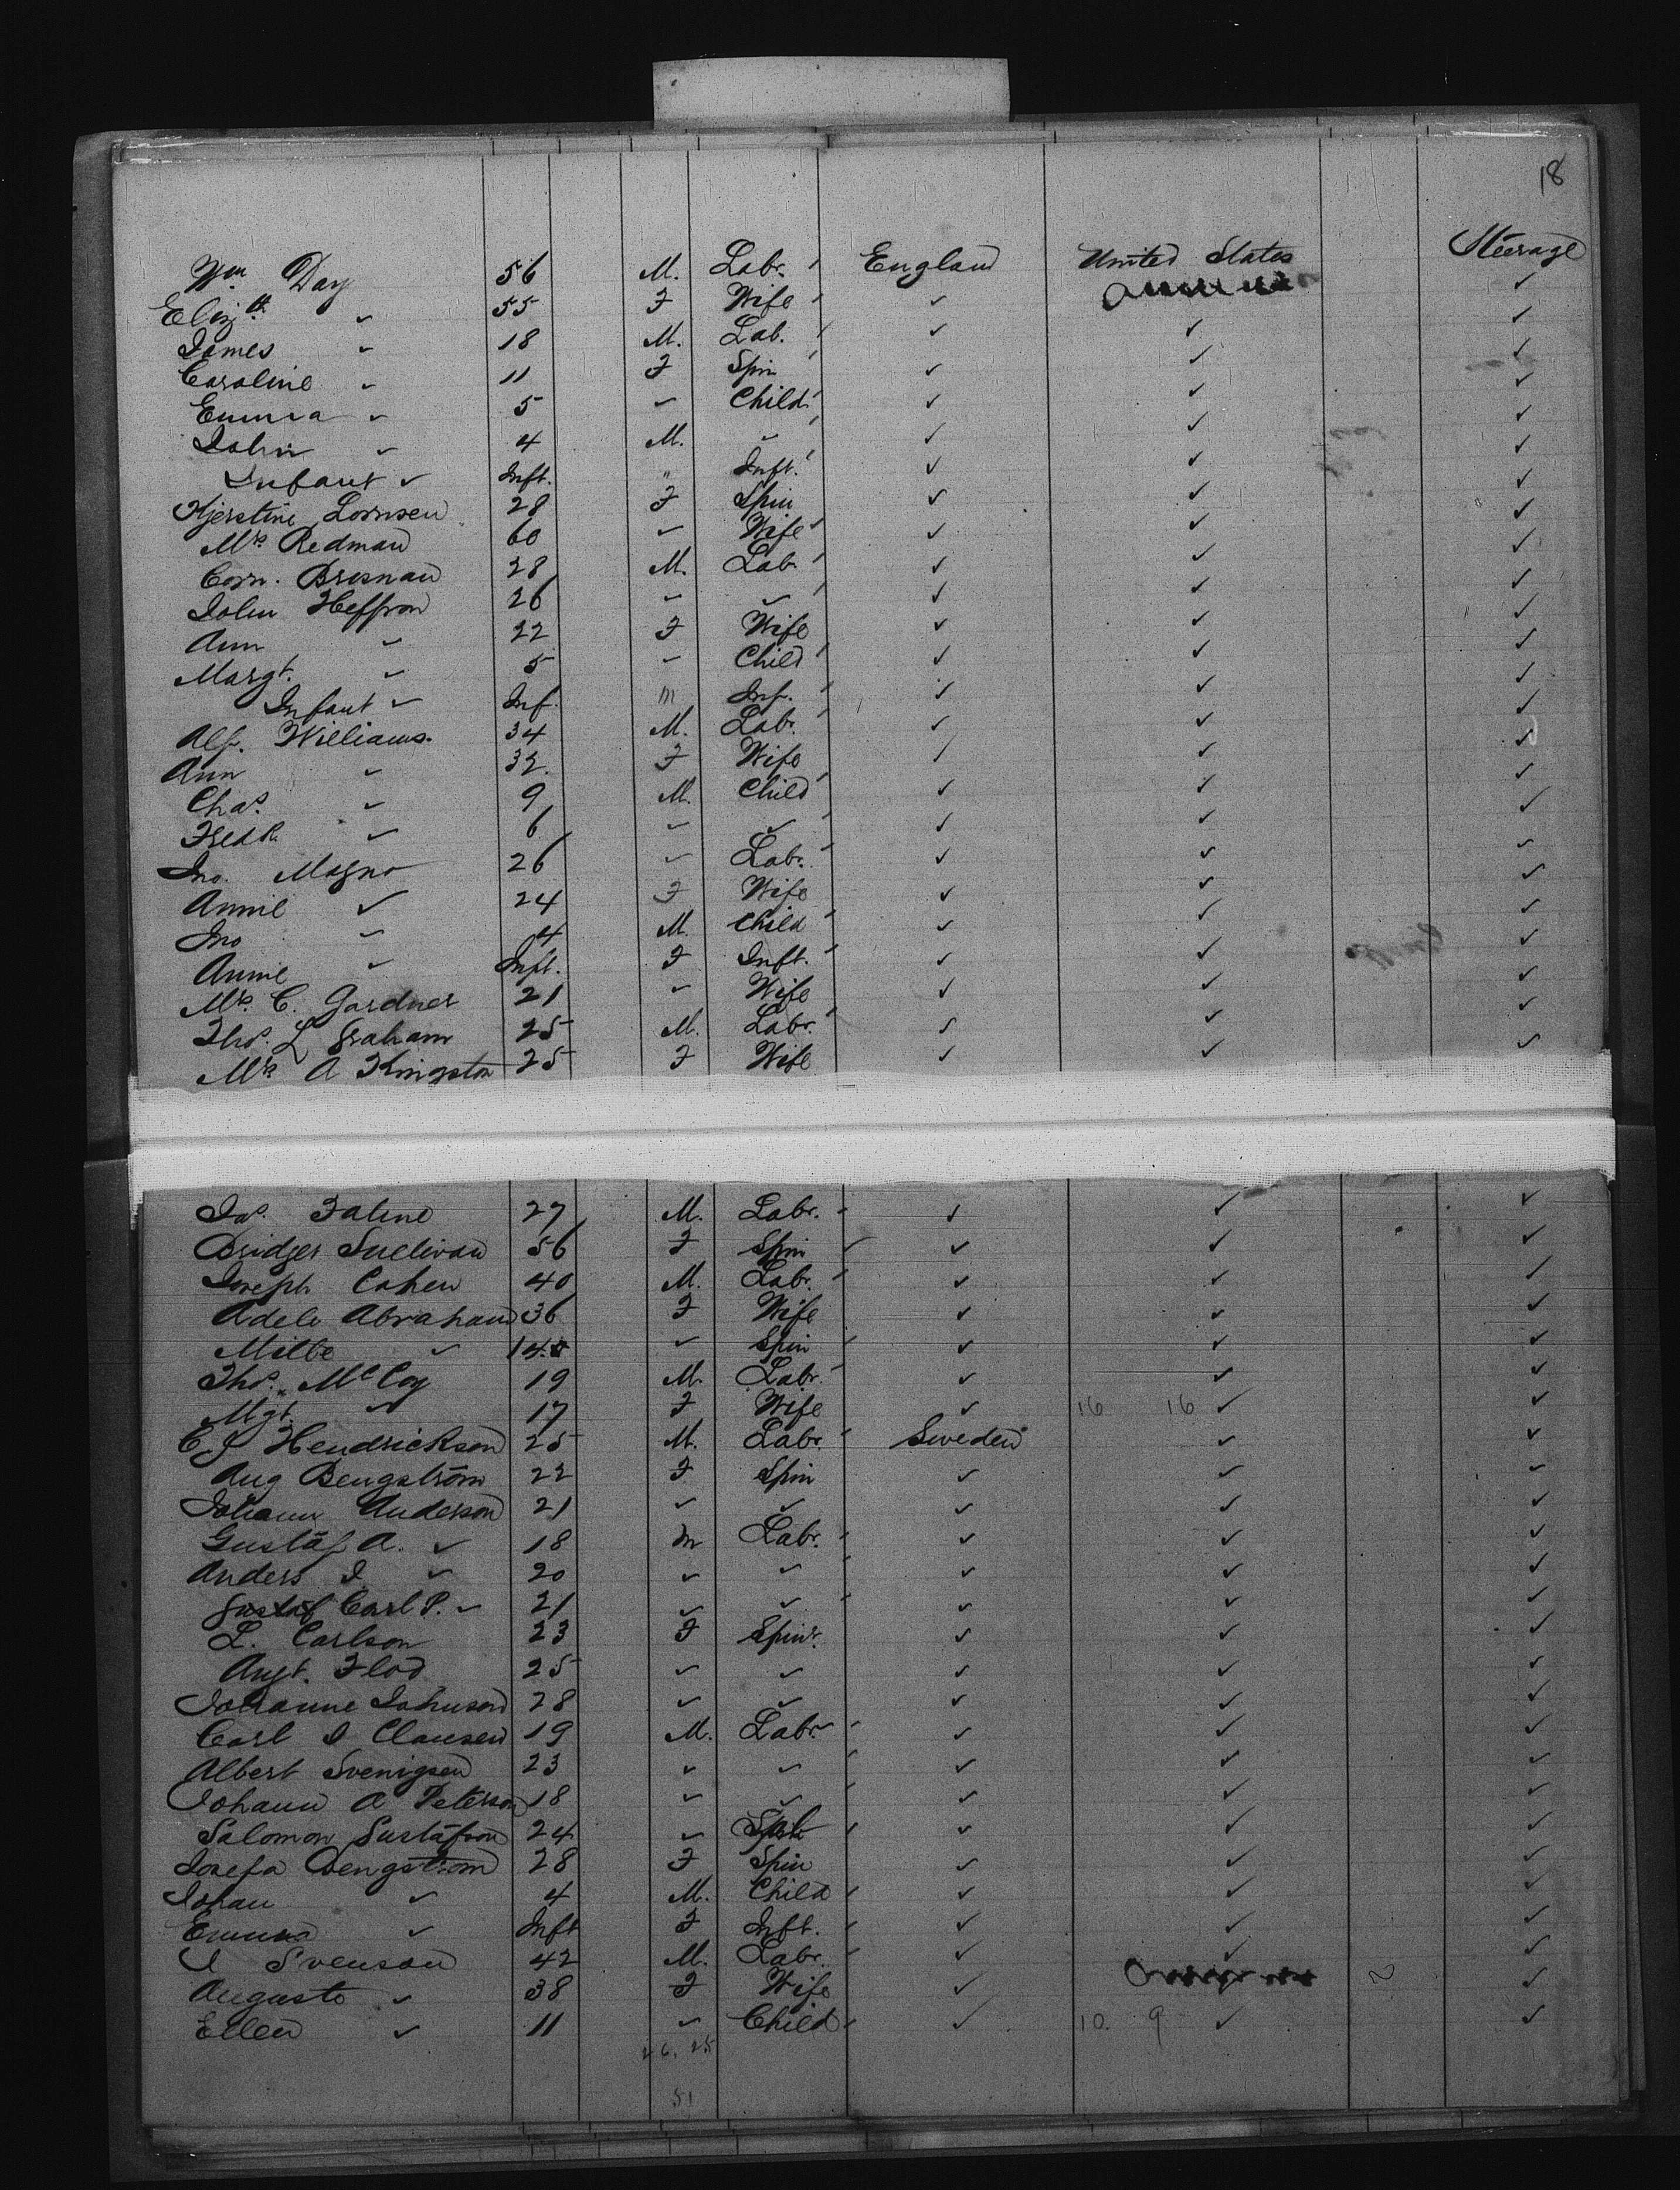 18
Wm Day 56 M. Labr. England United States Steerage
Elizth ✓ 55 F Wife ✓ ✓
James ✓ 18 M. Lab. ✓ ✓ ✓
Caroline ✓ 11 F Spin ✓ ✓ ✓
Emma ✓ 5 ✓ Child ✓ ✓ ✓
John ✓ 4 M. ✓ ✓ ✓ ✓
Infant ✓ Inft. " Inft. ✓ ✓ ✓
Hjerstine Lornsen 28 F Spin ✓ ✓ ✓
Mrs. Redman 60 ✓ Wife ✓ ✓ ✓
Corn. Bresnan 28 M. Lab ✓ ✓ ✓
John Heffron 26 ✓ ✓ ✓ ✓ ✓
Ann ✓ 22 F Wife ✓ ✓ ✓
Margt. ✓ 5 ✓ Child ✓ ✓ ✓
Infant ✓ Inf. m Inf. ✓ ✓ ✓
Alf. Williams. 34 M. Labr. ✓ ✓ ✓
Ann ✓ 32. F Wife ✓ ✓ ✓
Chas. ✓ 9 M. Child ✓ ✓ ✓
Fredk. ✓ 6 ✓ ✓ ✓ ✓ ✓
Jno. Magno 26 ✓ Labr. ✓ ✓ ✓
Annie ✓ 24 F Wife ✓ ✓ ✓
Jno ✓ 4 M. Child ✓ ✓ ✓
Annie ✓ Inft. F Inft. ✓ ✓ ✓
Mrs. C. Gardner 21 ✓ Wife ✓ ✓ ✓
Thos. L Graham 25 M. Labr. ✓ ✓ ✓
Mrs A Kingston 25 F Wife ✓ ✓ ✓
Jas. Faline 27 M. Labr. ✓ ✓ ✓
Bridger Sullivan 56 F Spin ✓ ✓ ✓
Joseph Cohen 40 M. Labr. ✓ ✓ ✓
Adele Abraham 36 F Wife ✓ ✓ ✓
Milbe ✓ 14 ✓ Spin ✓ ✓ ✓
Thos. McCoy 19 M. Labr. ✓ ✓ ✓
Mgt. ✓ 17 F Wife ✓ 16 16 ✓ ✓
C J Hendrickson 25 M. Labr. Sweden ✓ ✓
Aug Bengström 22 F Spin ✓ ✓ ✓
Johann Anderson 21 ✓ ✓ ✓ ✓ ✓
Gustaf A. ✓ 18 m Labr. ✓ ✓ ✓
Anders J ✓ 20 ✓ ✓ ✓ ✓ ✓
Gustaf Carl P. ✓ 21 ✓ ✓ ✓ ✓ ✓
L. Carlson 23 F Spinr. ✓ ✓ ✓
Augt. Flod 25 ✓ ✓ ✓ ✓ ✓
Johanne Johnson 28 ✓ ✓ ✓ ✓ ✓
Carl J Clausen 19 M. Labr ✓ ✓ ✓
Albert Svenigsen 23 ✓ ✓ ✓ ✓ ✓
Johann A Peterson 18 ✓ ✓ ✓ ✓ ✓
Salomon Gustafson 24 ✓ ✓ ✓ ✓
Josefa Bengstrom 28 F Spin ✓ ✓ ✓
Johan ✓ 4 M. Child ✓ ✓ ✓
Emma ✓ Inft F Inft. ✓ ✓ ✓
J Svenson 42 M. Labr. ✓ ✓ ✓
Auguste ✓ 38 F Wife ✓ 2 ✓
Ellen ✓ 11 ✓ Child ✓ 10. 9 ✓ ✓
26. 25
51